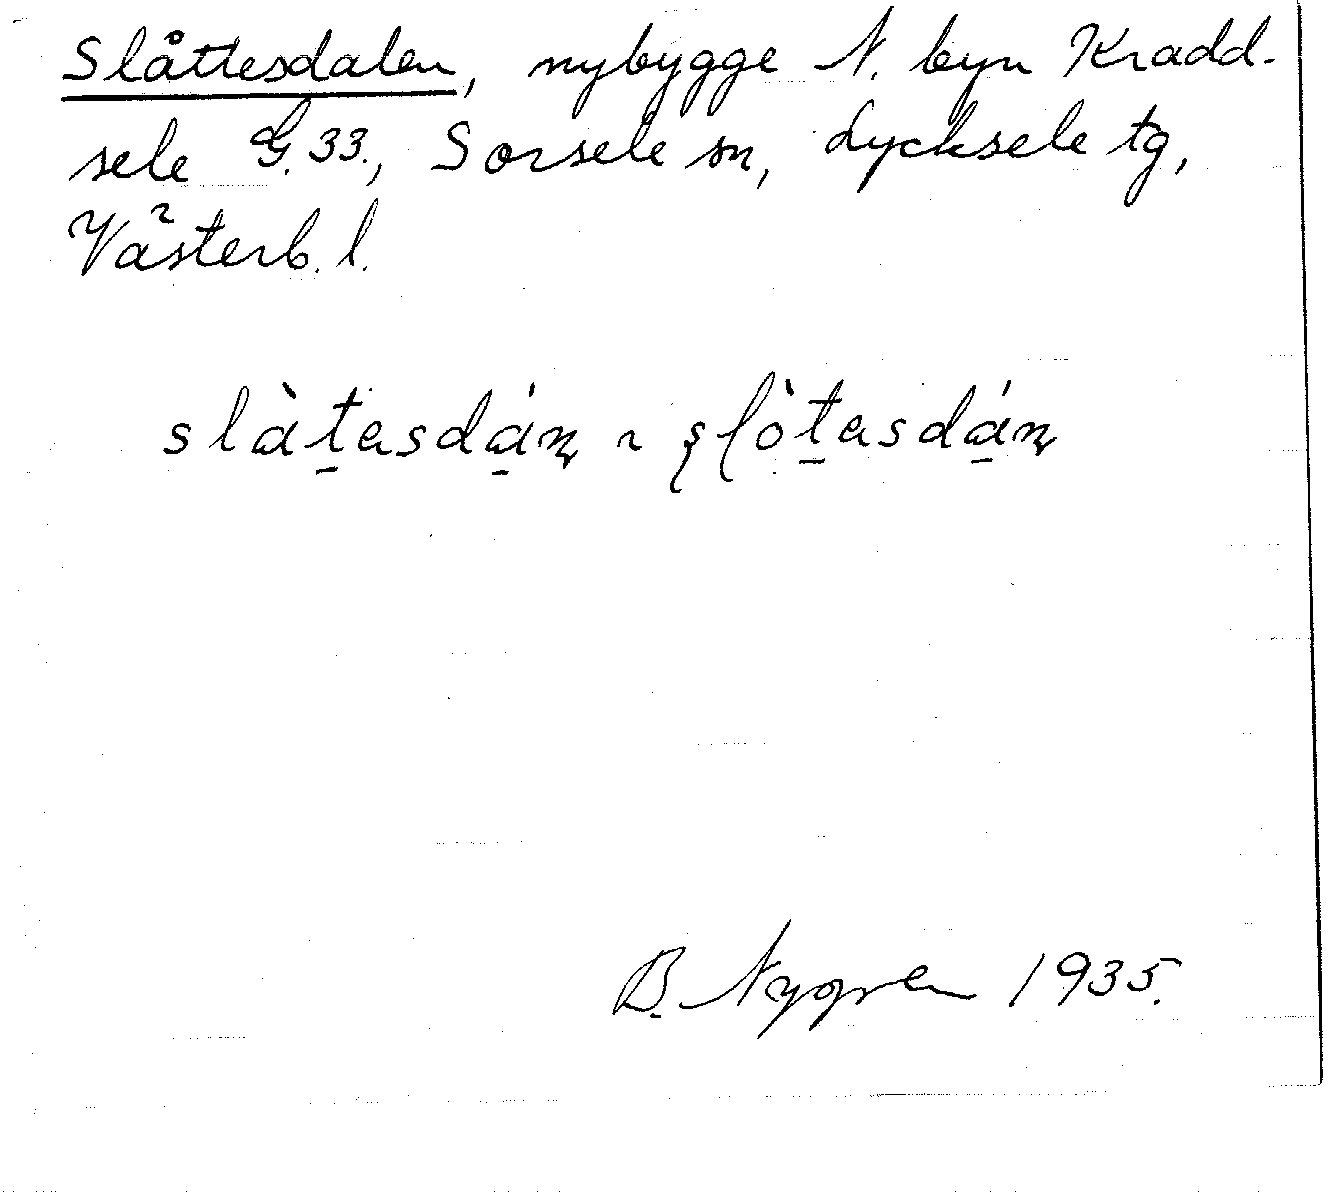 Slåttesdalen, nybygge N. byn Kradd-
sele G. 33., Sorsele sn, Lycksele tg,
Västerb. l.
slàt̠asdá̠n ~ şlòt̠asdá̠n
B. Nygren 1935.